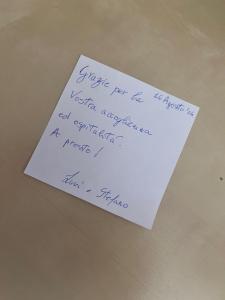 Grazie per la 26 Agosto '24
Vostra accoglienza
ed ospitalità.
A presto!
e Stefano